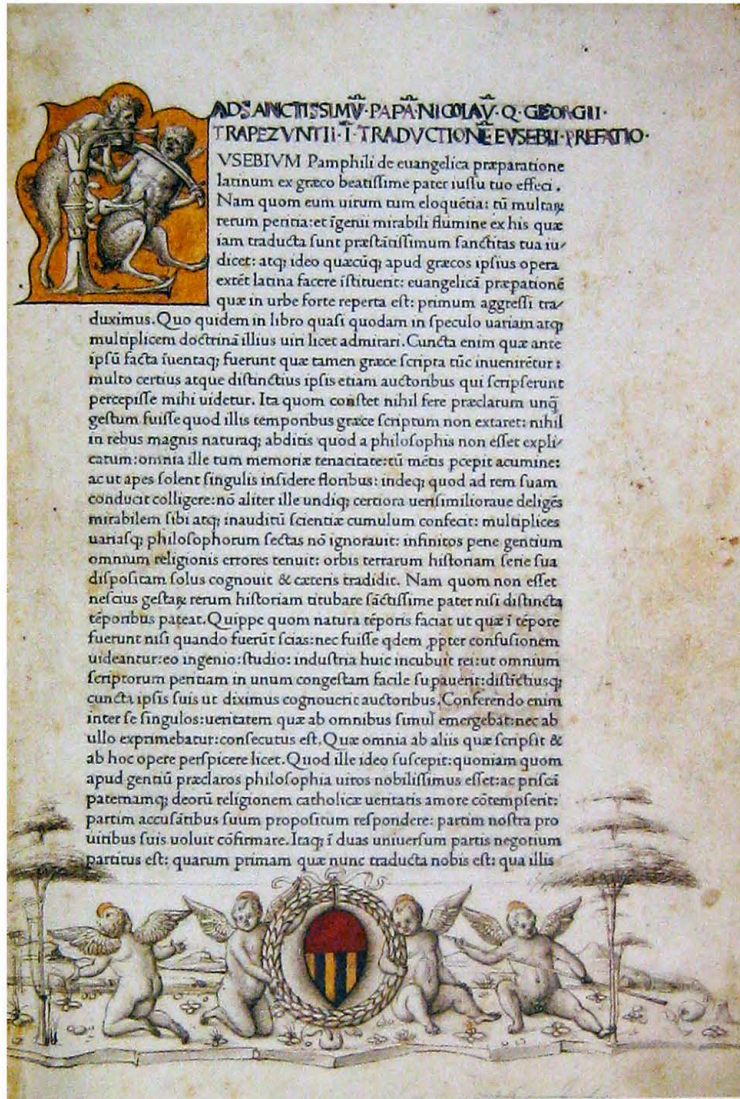 AD SANCTISSIMṼ·PAPÃ·NICOLAṼ·Q·GEORGII·
TRAPEZVNTII·Ĩ·TRADVCTIONẼ EVSEBII·PREFATIO·
VSEBIVM Pamphili de euangelica præparatione
latinum ex græco beatissime pater iussu tuo effeci.
Nam quom eum uirum tum eloquẽtia: tũ multaꝝ
rerum peritia: et ĩgenii mirabili flumine ex his quæ
iam traducta sunt præstãtissimum sanctitas tua iu/
dicet: atq; ideo quæcũq; apud græcos ipsius opera
extẽt latina facere ĩstituerit: euangelicã præpationẽ
quæ in urbe forte reperta est: primum aggressi tra/
duximus. Quo quidem in libro quasi quodam in speculo uariam atq;
multiplicem doctrinã illius uiri licet admirari. Cuncta enim quæ ante
ipsũ facta ĩuentaq; fuerunt quæ tamen græce scripta tũc inuenirẽtur:
multo certius atque distinctius ipsis etiam auctoribus qui scripserunt
percepisse mihi uidetur. Ita quom constet nihil fere præclarum unq̃
gestum fuisse quod illis temporibus græce scriptum non extaret: nihil
in rebus magnis naturaq; abditis quod a philosophis non esset expli/
catum: omnia ille tum memoriæ tenacitate: tũ mẽtis pcepit acumine:
ac ut apes solent singulis insidere floribus: indeq; quod ad rem suam
conducit colligere: nõ aliter ille undiq; certiora uerisimilioraue deligẽs
mirabilem sibi atq; inauditũ scientiæ cumulum confecit: multiplices
uariasq; philosophorum sectas nõ ignorauit: infinitos pene gentium
omnium religionis errores tenuit: orbis terrarum historiam serie sua
dispositam solus cognouit & cæteris tradidit. Nam quom non esset
nescius gestaꝝ rerum historiam titubare sãctissime pater nisi distincta
tẽporibus pateat. Quippe quom natura tẽporis faciat ut quæ ĩ tẽpore
fuerunt nisi quando fuerũt scias: nec fuisse qdem ꝓpter confusionem
uideantur: eo ingenio: studio: industria huic incubuit rei: ut omnium
scriptorum peritiam in unum congestam facile supauerit: distĩctiusq;
cuncta ipsis suis ut diximus cognouerit auctoribus. Conferendo enim
inter se singulos: ueritatem quæ ab omnibus simul emergebat: nec ab
ullo exprimebatur: consecutus est. Quæ omnia ab aliis quæ scripsit &
ab hoc opere perspicere licet. Quod ille ideo suscepit: quoniam quom
apud gentiũ præclaros philosophia uiros nobilissimus esset: ac priscã
paternamq; deorũ religionem catholicæ ueritatis amore cõtempserit:
partim accusãtibus suum propositum respondere: partim nostra pro
uiribus suis uoluit cõfirmare. Itaq; ĩ duas uniuersum partis negotium
partitus est: quarum primam quæ nunc traducta nobis est: qua illis